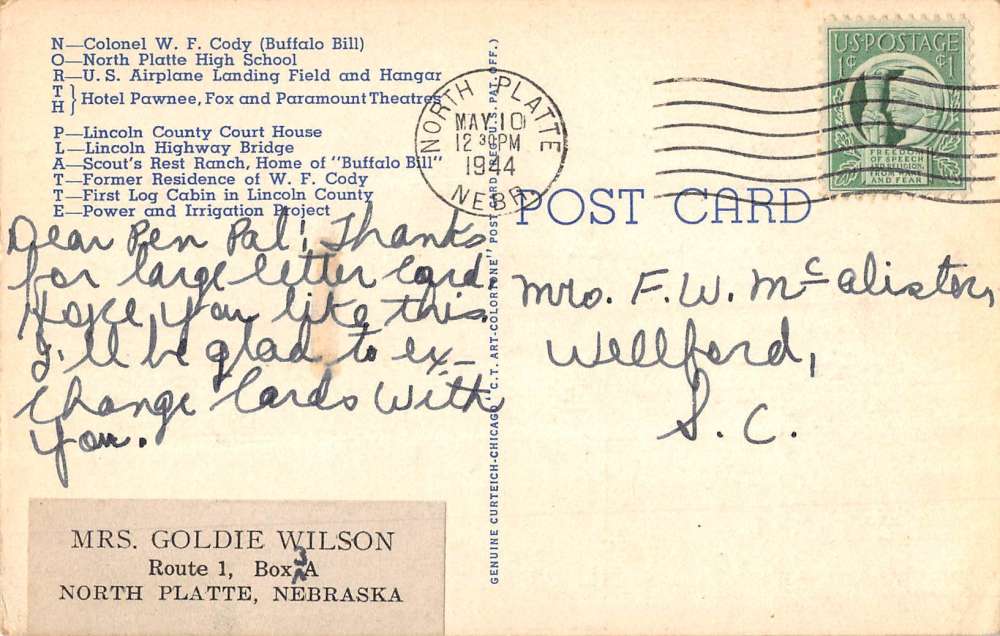 N—Colonel W. F. Cody (Buffalo Bill)
O—North Platte High School
R—U. S. Airplane Landing Field and Hangar
T
H } Hotel Pawnee, Fox and Paramount Theatres
P—Lincoln County Court House
L—Lincoln Highway Bridge
A—Scout's Rest Ranch, Home of "Buffalo Bill"
T—Former Residence of W. F. Cody
T—First Log Cabin in Lincoln County
E—Power and Irrigation Project
Dear Pen Pal! Thanks
for large letter card.
Hope you like this.
I'll be glad to ex-
change Cards with
you.
MRS. GOLDIE WILSON
Route 1, Box 3 A
NORTH PLATTE, NEBRASKA
GENUINE CURTEICH-CHICAGO "C.T. ART-COLORTONE" POST CARD (REG. U.S. PAT. OFF.)
NORTH PLATTE
MAY 10
12 30 PM
1944
NEBR
U·S·POSTAGE
1¢ ¢1
FREEDOM
OF SPEECH
AND RELIGION,
FROM WANT
AND FEAR
POST CARD
Mrs. F. W. McAlister,
Wellford,
S. C.